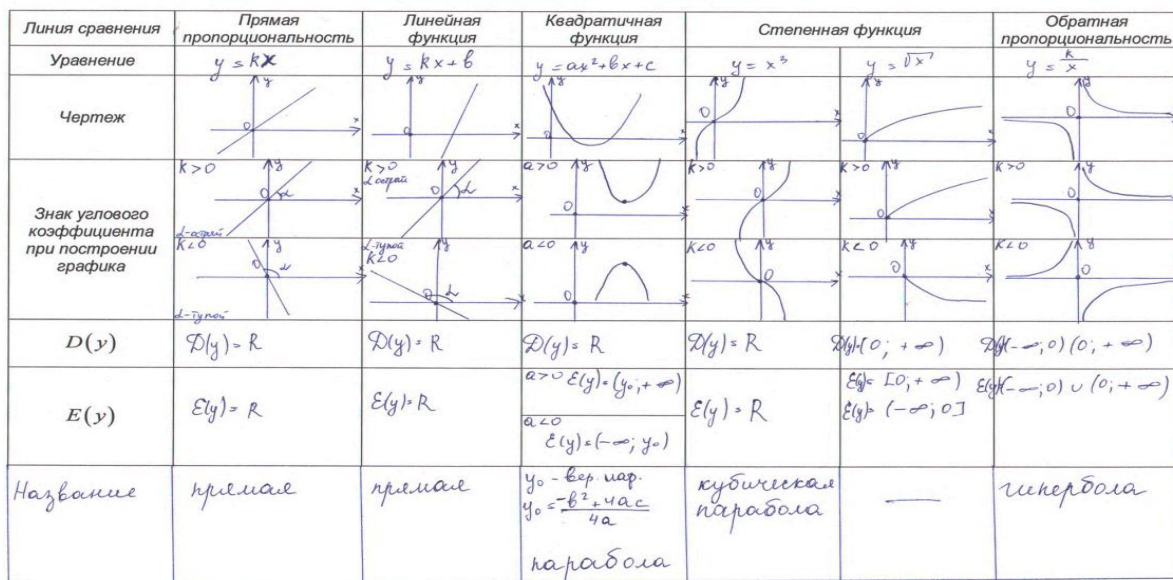 Линия сравнения
Прямая
пропорциональность
Линейная
функция
Квадратичная
функция
Степенная функция
Обратная
пропорциональность
Уравнение
y = kx
y = kx + b
y = ax² + bx + c
y = x³
y = √x
y = k/x
Чертеж
y
x
0
y
x
0
y
x
0
y
x
0
y
x
0
y
x
0
Знак углового
коэффициента
при построении
графика
k > 0
y
x
0
α
α-острый
k > 0
α острый
y
x
0
α
a > 0
y
x
0
k > 0
y
x
0
k > 0
y
x
0
k > 0
y
x
0
k < 0
y
x
0
α
α-тупой
α-тупой
k < 0
y
x
0
α
a < 0
y
x
0
k < 0
y
x
0
k < 0
y
x
0
k < 0
y
x
0
D(y)
D(y) = R
D(y) = R
D(y) = R
D(y) = R
D(y)=[0; +∞)
D(y)(-∞; 0) (0; +∞)
E(y)
E(y) = R
E(y) = R
a > 0 E(y) = (y₀; +∞)
a < 0
E(y) = (-∞; y₀)
E(y) = R
E(y) = [0; +∞)
E(y) = (-∞; 0]
E(y)(-∞; 0) ∪ (0; +∞)
Название
прямая
прямая
y₀ - вер. пар.
y₀ = -b² + 4ac / 4a
парабола
кубическая
парабола
—
гипербола